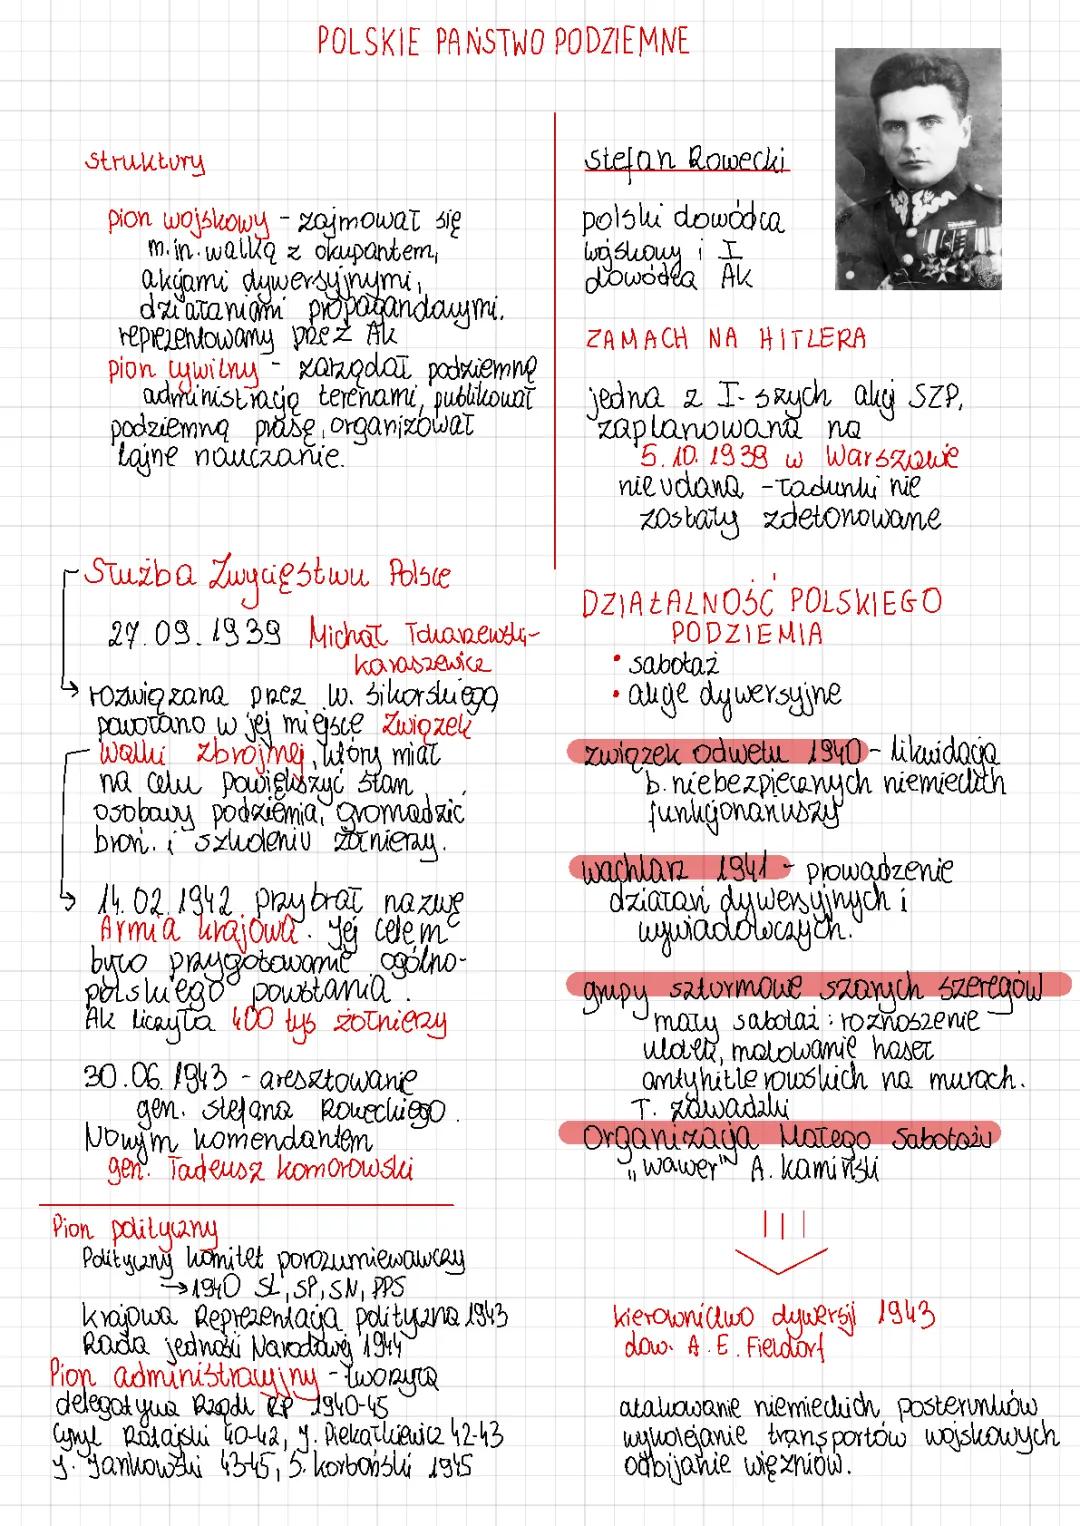 POLSKIE PAŃSTWO PODZIEMNE
struktury
pion wojskowy - zajmował się
m.in. walką z okupantem,
akcjami dywersyjnymi,
działaniami propagandowymi.
reprezentowany przez AK
pion cywilny - zarządał podziemną
administracją terenami, publikował
podziemną prasę, organizował
tajne nauczanie.
Stefan Rowecki
polski dowódca
wojskowy i I
dowódca AK
ZAMACH NA HITLERA
jedna z I-szych akcji SZP,
zaplanowana na
5.10.1939 w Warszawie
nieudana - ładunki nie
zostały zdetonowane
Służba Zwycięstwu Polsce
27.09.1939 Michał Tokarzewski-
Karaszewicz
rozwiązana przez W. Sikorskiego
powołano w jej miejsce Związek
Walki zbrojnej, który miał
na celu powiększyć stan
osobowy podziemia, gromadzić
broń. i szkoleniu żołnierzy.
14.02.1942 przybrał nazwę
Armia krajowa. Jej celem
było przygotowanie ogólno-
polskiego powstania.
AK liczyła 400 tys żołnierzy
30.06.1943 - aresztowanie
gen. Stefana Roweckiego.
Nowym komendantem
gen. Tadeusz Komorowski
Pion polityczny
Polityczny komitet porozumiewawczy
→1940 SL, SP, SN, PPS
krajowa Reprezentacja polityczna 1943
Rada jedności Narodowej 1944
Pion administracyjny - tworzyła
delegatura Rządu RP 1940-45
Cyryl Ratajski 40-42, J. Piekałkiewicz 42-43
J. Jankowski 43-45, S. Korboński 1945
DZIAŁALNOŚĆ POLSKIEGO
PODZIEMIA
• sabotaż
• akcje dywersyjne
związek odwetu 1940 - likwidacja
b. niebezpiecznych niemieckich
funkcjonariuszy
wachlarz 1941 - prowadzenie
działań dywersyjnych i
wywiadowczych.
grupy szturmowe szarych szeregów
mały sabotaż: roznoszenie
ulotek, malowanie haseł
antyhitlerowskich na murach.
T. Zawadzki
Organizacja Małego Sabotażu
„Wawer" A. Kamiński
kierownictwo dywersji 1943
dow. A.E. Fieldorf
atakowanie niemieckich posterunków
wykolejanie transportów wojskowych
odbijanie więźniów.